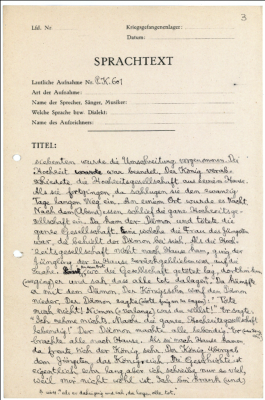 3
Lfd. Nr.
Kriegsgefangenenlager:
Datum:
SPRACHTEXT
Lautliche Aufnahme Nr. P.K. 601
Art der Aufnahme:
Name der Sprecher, Sänger, Musiker:
Welche Sprache bzw. Dialekt:
Name des Aufzeichners:
TITEL:
siebenten wurde die Umschreitung vorgenommen. Die
Hochzeit wurde war beendet. Der König verab-
schiedete die Hochzeitsgesellschaft aus seinem Hause.
Als sie fortgingen, da schlugen sie den zwanzig
Tage langen Weg ein. An einem Ort wurde es Nacht.
Nach dem Abendessen schlief die ganze Hochzeitsge-
sellschaft ein. Da kam der Dämon und tötete die
ganze Gesellschaft. Eine welche die Frau des Jüngsten
war, die behielt der Dämon bei sich. Als die Hoch-
zeitsgesellschaft nicht nach Hause kam, ging der
Jüngling der zu Hause zurückgeblieben war, auf die
Suche. wo die Gesellschaft getötet lag, dorthin kam
er und sah, dass alle tot dalagen. Da kämpfte
er mit dem Dämon. Der Königssohn warf den Dämon
nieder. Der Dämon sagte: "Töte
mich nicht! Nimm was du willst!" Er sagte:
"Ich nehme nichts. Mache die ganze Hochzeitsgesellschaft
lebendig!" Der Dämon machte alle lebendig. Er
brachte alle nach Hause. Als sie nach Hause kamen
da freute sich der König sehr. Der König übergab
dem Jüngsten das Königreich. Die Geschichte ist
eigentlich sehr lang aber ich schreibe nur so viel,
weil mir nicht wohl ist. Ich bin krank (und)